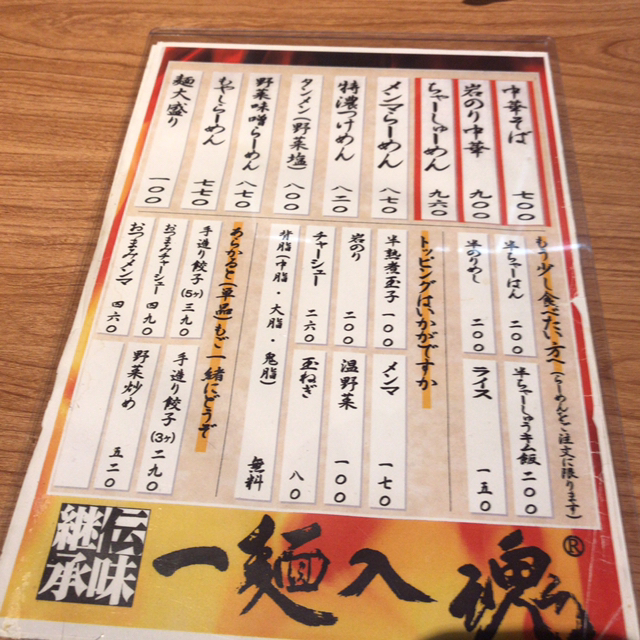 中華そば 七〇〇
岩のり中華 九〇〇
ちゃーしゅーめん 九六〇
メンマらーめん 八七〇
特濃つけめん 八二〇
タンメン(野菜塩) 八〇〇
野菜味噌らーめん 八七〇
もやしらーめん 七七〇
麺大盛り 一〇〇
もう少し食べたい方へ(らーめんをご注文に限ります)
半ちゃーはん 二〇〇
半ちゃーしゅうキム飯 二〇〇
半のりめし 二〇〇
ライス 一五〇
トッピングはいかがですか
半熟煮玉子 一〇〇
メンマ 一七〇
岩のり 二〇〇
温野菜 一〇〇
チャーシュー 二六〇
玉ねぎ 八〇
背脂(中脂・大脂・鬼脂) 無料
あらかると(単品)もご一緒にどうぞ
手造り餃子(5ヶ) 三九〇
手造り餃子(3ヶ) 二九〇
おつまみチャーシュー 四九〇
野菜炒め 五二〇
おつまみメンマ 四六〇
伝味継承
一麺入魂
®